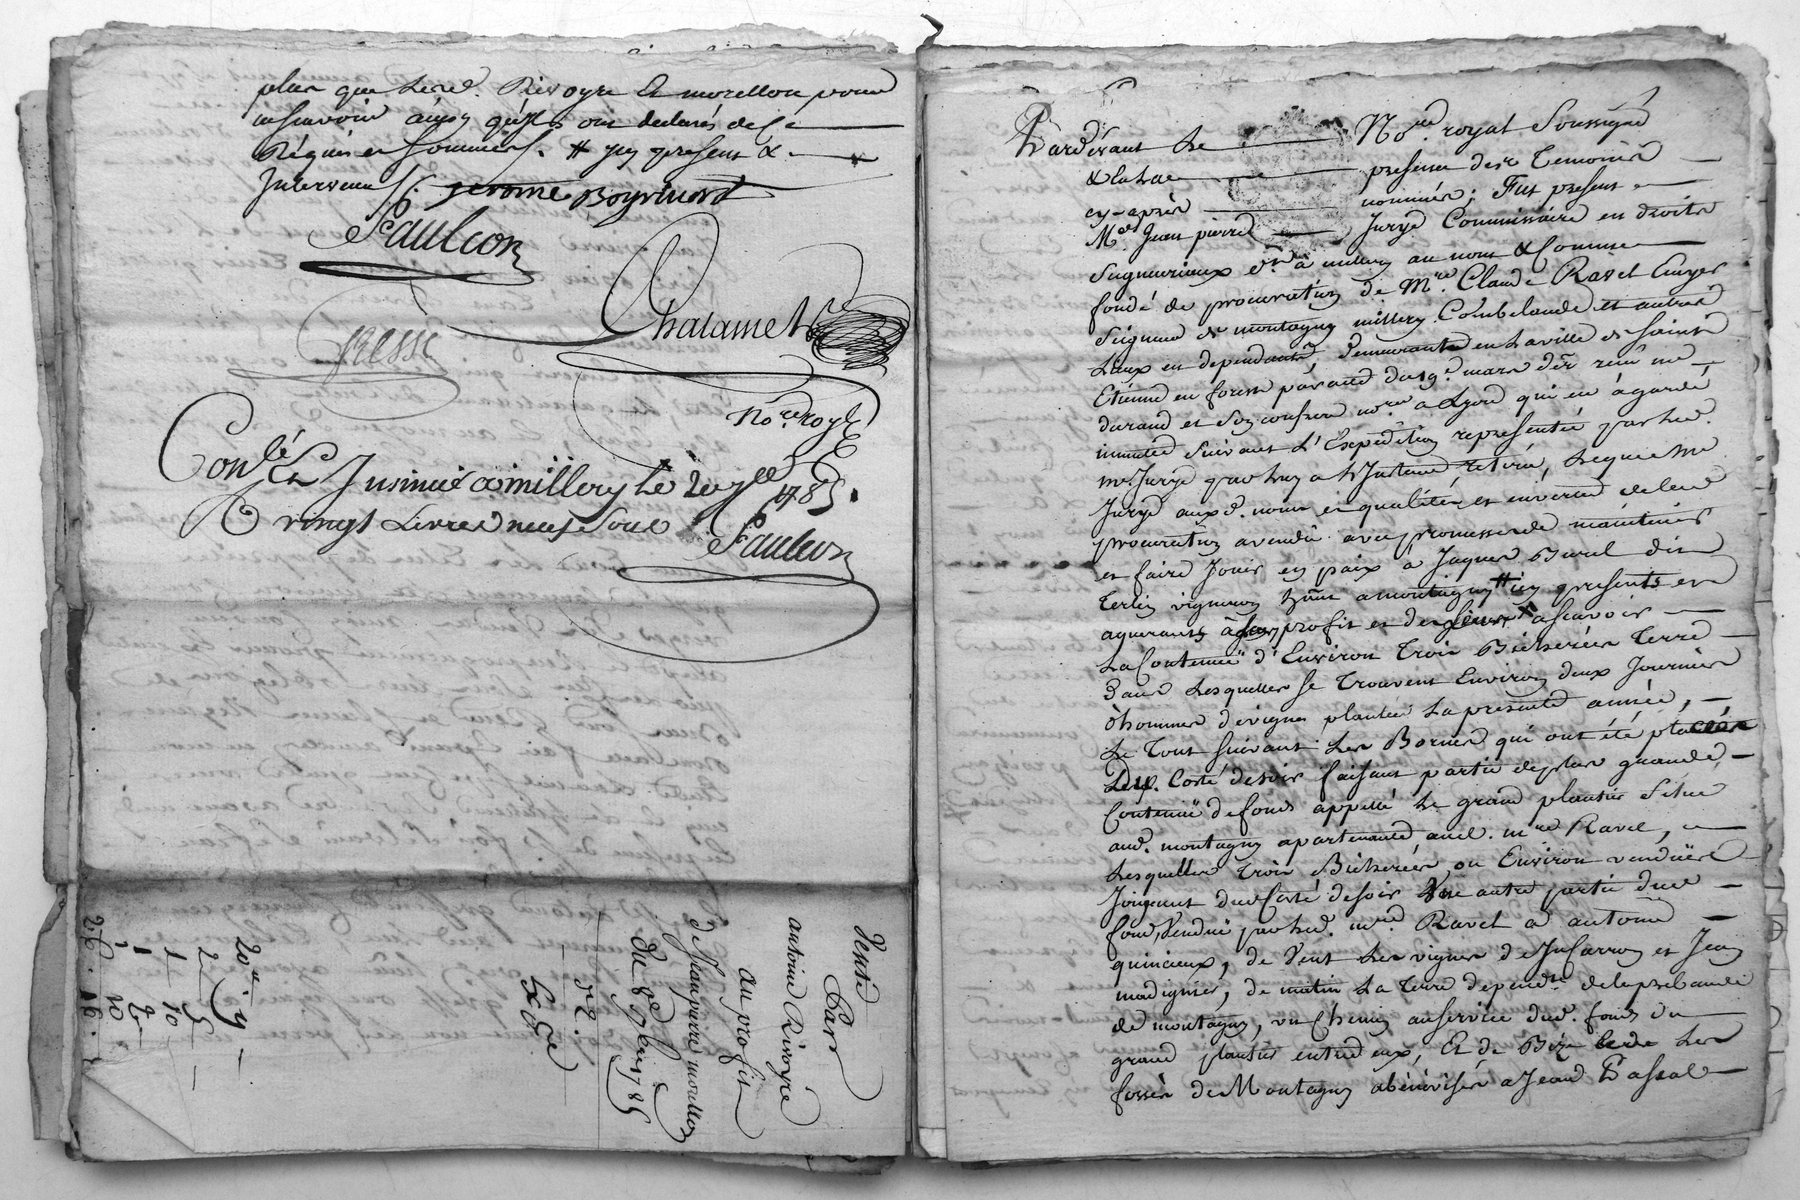 plus que led. Rivoyre & morellon pour
ne sçavoir ainsy qu'ils ont declarés de ce
Réquis et sommés. # icy present &
Intervenu /. jerome Boyrivord
Faulcon
Chalamel
Presse
No.re royl
Con.lé & Insinué a millery le 20 7bre 1785.
R vingt Livres neuf sous Faulcon
Vente
Par
antoine Rivoyre
au profit
de Jean pierre morellon
du 8e 7bre 1785
n.° 52.
Par devant le No.re royal Soussigné
& en la presence des Temoins
cy-après nommés; Fut present
M.e Jean pierre Jurye Commissaire en droits
Seigneuriaux dt à millery au nom & Comme
fondé de procuration de M.re Claude Ravel Ecuyer
Seigneur de montagny millery Combelande et autres
Lieux en dependants, demeurant en la ville de Saint
Etienne en forest par acte du 9e mars der. reçu me
durand et son confrere no.res a Lyon qui en a gardé
minutte suivant l'Expedition representée par led.
me Jurye & par luy a l'Instant retirée, Lequel me
Jurye auxd. noms et qualités et en vertu de lad
procuration a vendu avec promesse de maintenir
et faire Jouir en paix à Jaques Burel dit
Terlin vigneron ht a montagny # icy present et
aquerant à son profit et des siens x asçavoir
La Contenuë d'Environ trois Bicherées Terre
dans Lesquelles se trouvent Environ deux Journées
d'hommes de vignes plantée La presente année,
Le Tout suivant les Bornes qui ont été placées
Du Coté de soir faisant partie de plus grande
Contenuë de fonds appellé Le grand plantier Situé
aud. montagny apartenant aud. m.re Ravel,
Lesquelles trois Bicherées ou Environ venduës
Joignent du Coté de soir Une autre partie dud
fond, Vendue par led. m.re Ravel a antoine
quincieux, de Vent Les vignes de Jusarron et Jean
madignier, de matin La terre dependte de la prebande
de montagny, un Chemin au service dud. fonds du
grand plantier entre deux, Et de Bize les
fossés de Montagny abénévisés a Jean Passal